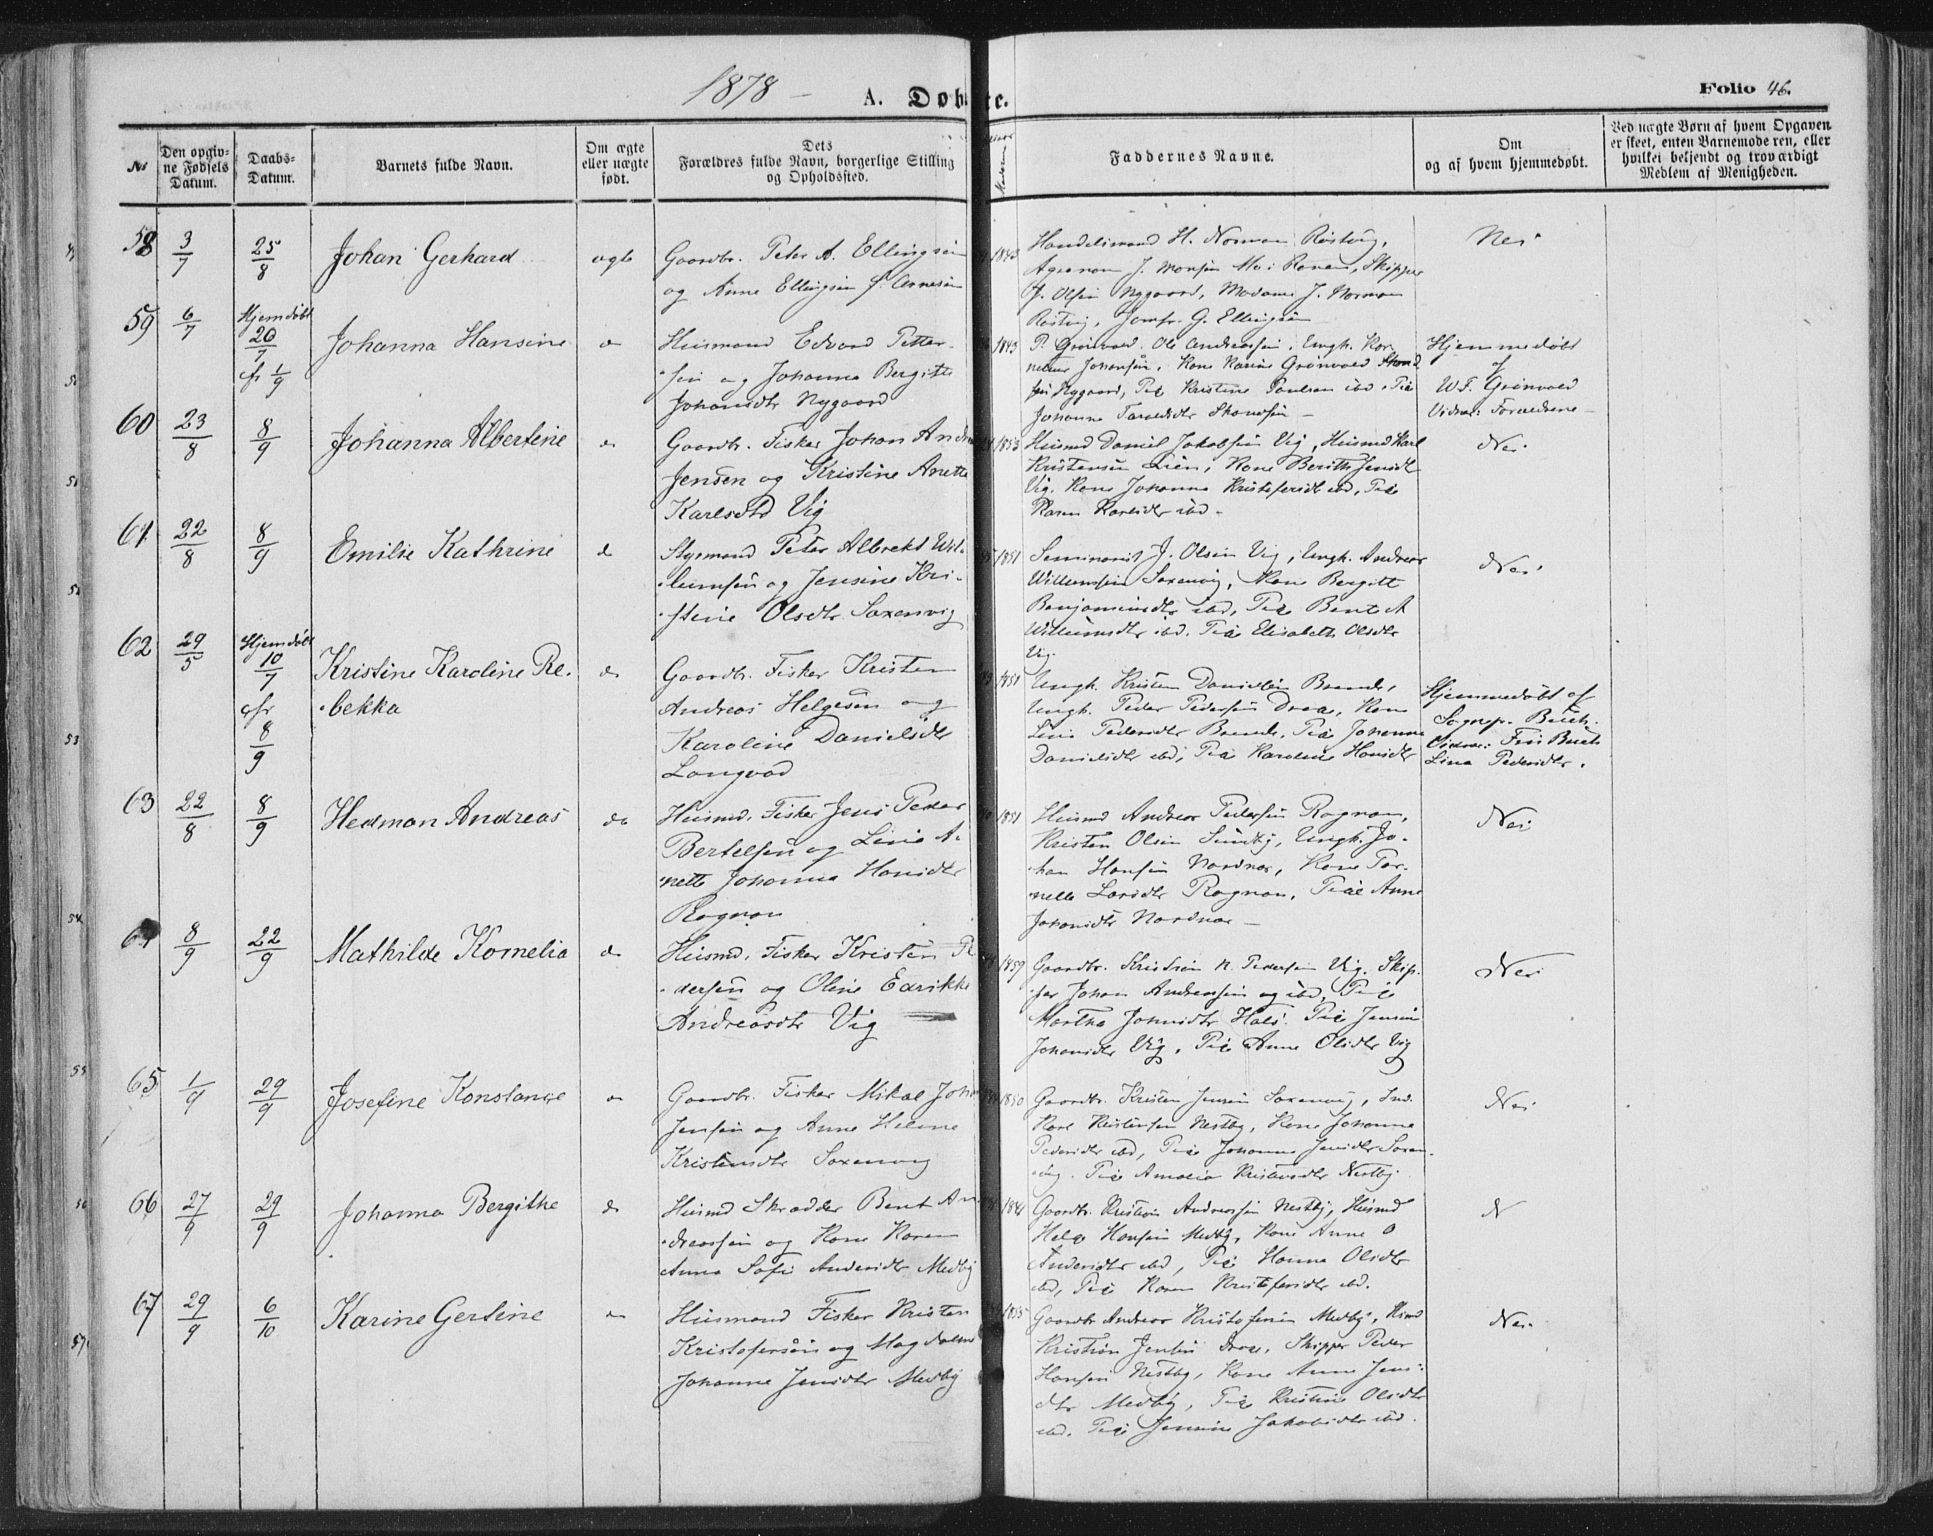 1878 –
A. Døbte.
Folio 46.
No
Den opgiv-
ne Fødsels
Datum.
Daabs-
Datum.
Barnets fulde Navn.
Om ægte
eller uægte
født.
Dets
Forældres fulde Navn, borgerlige Stilling
og Opholdssted.
Faddernes Navne.
Om
og af hvem hjemmedøbt.
Ved uægte Børn af hvem Opgaven
er skeet, enten Barnemoderen, eller
hvilket betjendt og troværdigt
Medlem af Menigheden.
58
3/7
25/8
Johan Gerhard
ægte
Gaardbr. Peter A. Ellingsen
og Anne Ellingsen f. Arnesen
1843
Handelsmand H. Norman Røstvig,
Agronom J. Monsen Moi Ranen, Skipper
P. Olsen Nygaard, Madame J. Norman
Røstvig, Jomfr. G. Ellingsen
Nei
59
6/7
Hjemdøbt
20/7
cfr 1/9
Johanna Hansine
do
Husmand Edvard Petter-
sen og Johanna Bergitte
Johansdtr Nygaard
1843
P. Grønvold. Ole Andreassen, Ungk. Kor-
nelius Johansen, Kone Karine Grønvold
Nygaard, Pige Kristine Paulsen ibd. Pige
Johanne
Hjemmedøbt
af
W.F. Grønvold
Vidner: Forældrene –
60
23/8
8/9
Johanna Albertine
do
Gaardbr. Fisker Johan Andr
Jensen og Kristine Anette
Karlsdtr Vig
1853
Husmd Daniel Jakobsen Vig, Husmd Karl
Kristensen Lien, Kone Berith Jensdtr
Vig, Kone Johanna Kristofersdtr ibd, Pige
Karen Karlsdtr ibd.
Nei
61
22/8
8/9
Emilie Kathrine
do
Styrmand Peter Albrekt Wil-
lumsen og Jensine Kri-
stine Olsdtr Saxenvig
1851
Seminarist J. Olsen Vig, Ungk. Andreas
Willumsen Saxenvig, Kone Bergitt
Benjaminsdtr ibd, Pige Bent A
Willumsdtr ibd. Pige Elisabeth Olsdtr
Vig.
Nei
62
29/5
Hjemdøbt
10/7
cfr
8/9
Kristine Karoline Re-
bekka
do
Gaardbr. Fisker Kristen
Andreas Helgesen og
Karoline Danielsdtr
Langvad
1851
Ungk. Kristen Danielsen Brænde,
Ungk. Peder Pedersen Drag, Kone
Lina Pedersdtr Brænde, Pige Johanna
Danielsdtr ibd, Pige Karoline Hansdtr
Hjemmedøbt af
Sognep. Buch.
Vidner: Fru Buch
Lina Pedersdtr.
63
22/8
8/9
Hedman Andreas
do
Husmd. Fisker Jens Peder
Bertelsen og Lina A-
nette Johanna Hansdtr
Rognan
1851
Husmd Andreas Pedersen Rognan,
Kristen Olsen Sundby, Ungk. Jo-
han Hansen Nordnæs, Kone Par-
nelle Larsdtr Rognan, Pige Anne
Johansdtr Nordnæs –
Nei
64
8/9
22/9
Mathilde Kornelia
do
Husmd. Fisker Kristen Pe
dersen og Oline Edrikke
Andreasdtr Vig
1859
Gaardbr. Kristian N. Pedersen Vig. Skip-
per Johan Andreassen og ibd, Pige
Martha Johnsdtr Hals. Pige Jensine
Johansdtr Vig, Pige Anne Olsdtr Vig
Nei
65
1/9
29/9
Josefine Konstance
do
Gaardbr. Fisker Mikal Joha
Jensen og Anne Helene
Kristensdtr Saxenvig
1850
Gaardbr. Kristen Jensen Saxenvig, Ind.
Karl Kristensen Nestby, Kone Johanna
Pedersdtr ibd, Pige Johanne Jensdtr Saxen-
vig. Pige Amalia Kristensdtr Nestby.
Nei
66
27/9
29/9
Johanna Bergithe
do
Husmd Skrædder Bent An-
dreassen og Kone Karen
Anna Sofi Andersdtr Medby
Gaardbr. Kristian Andreassen Nestby, Husmd
Helge Hansen Medby, Kone Anne O
Andersdtr ibd, Pige Hanna Olsdtr
ibd, Pige Karen Kristofersdtr ibd.
N
67
29/9
6/10
Karine Gertine
do
Husmand Fisker Kristen
Kristofersen og Magdalena
Johanna Jensdtr Medby
1855
Gaardbr Andreas Kristofersen Medby, Husmd
Kristian Jensen Drag, Skipper Peder
Hansen Nestby, Kone Anne Jens-
dtr Medby, Pige Kristine Olsdtr
ibd. Pige Jensine Jakobsdtr ibd.
Nei